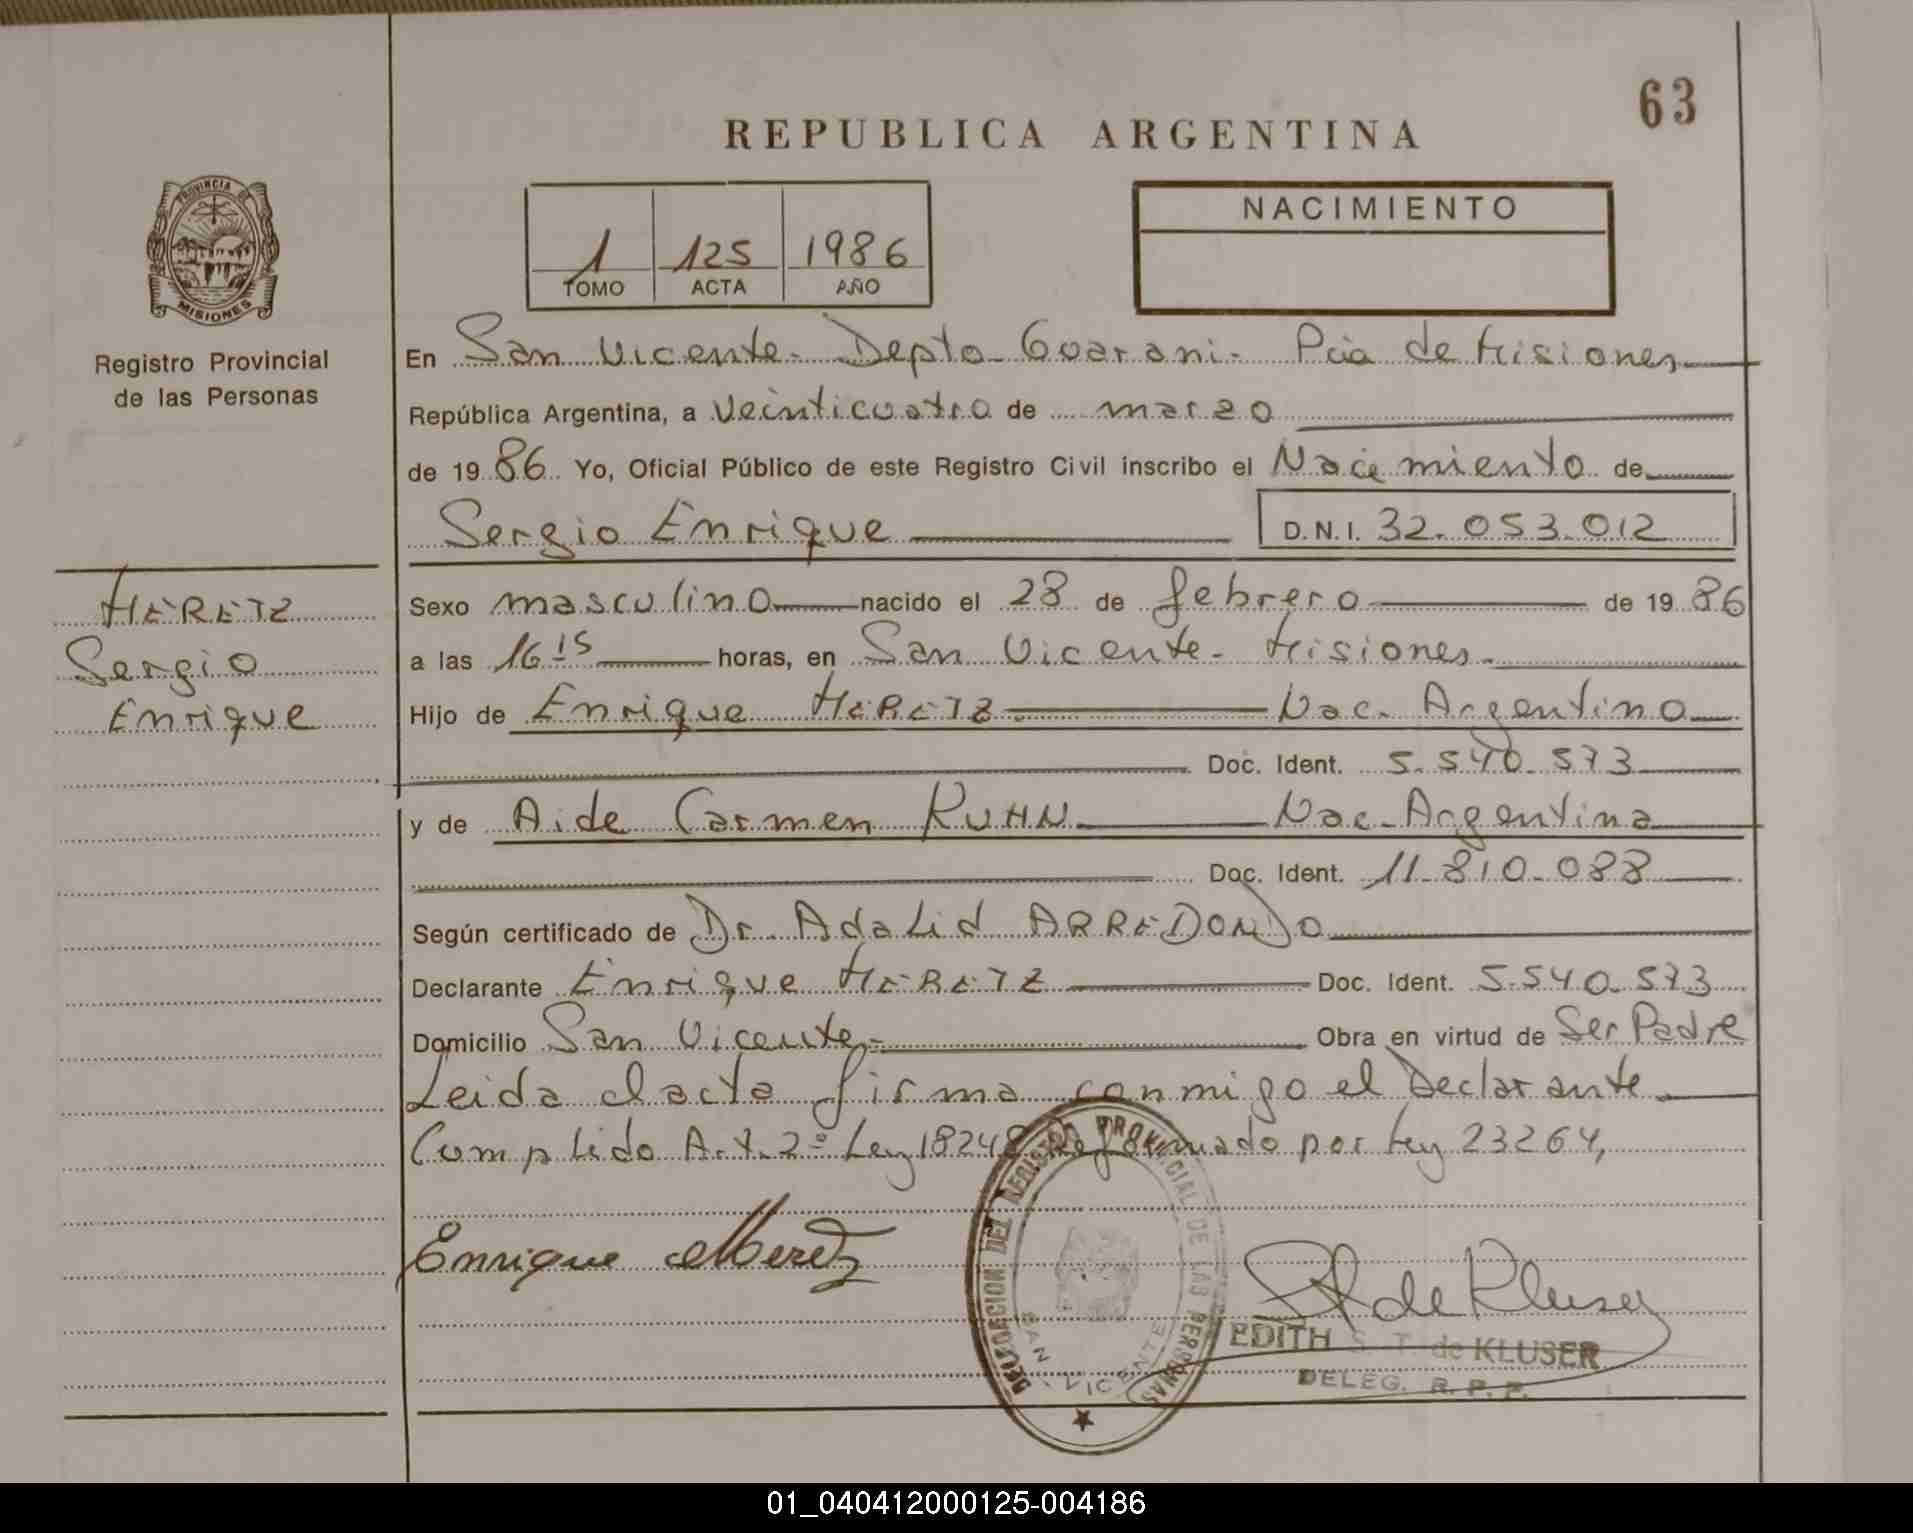 63
REPUBLICA ARGENTINA
PROVINCIA DE
MISIONES
Registro Provincial
de las Personas
1 125 1986
TOMO ACTA AÑO
NACIMIENTO
En San Vicente- Depto- Guarani- Pcia de Misiones
República Argentina, a Veinticuatro de marzo
de 1986 Yo, Oficial Público de este Registro Civil inscribo el Nacimiento de
Sergio Enrique D.N.I. 32.053.012
MERETZ
Sergio
Enrique
Sexo masculino nacido el 28 de febrero de 1986
a las 16 15 horas, en San Vicente- Misiones-
Hijo de Enrique MERETZ- Nac. Argentino
Doc. Ident. 5.540.573
y de Aide Carmen KUHN Nac-Argentina
Doc. Ident. 11-810-088
Según certificado de Dr. Adalid ARREDONDO
Declarante Enrique MERETZ Doc. Ident. 5.540.573
Domicilio San Vicente- Obra en virtud de Ser Padre
Leida el acta firma conmigo el Declarante
Cumplido Art. 2º Ley 18248 Reformado por Ley 23264,
Enrique Meretz
DELEGACION DEL REGISTRO PROVINCIAL DE LAS PERSONAS
SAN VICENTE
de Kluser
EDITH S. T. de KLUSER
DELEG. R. P. P.
01_040412000125-004186